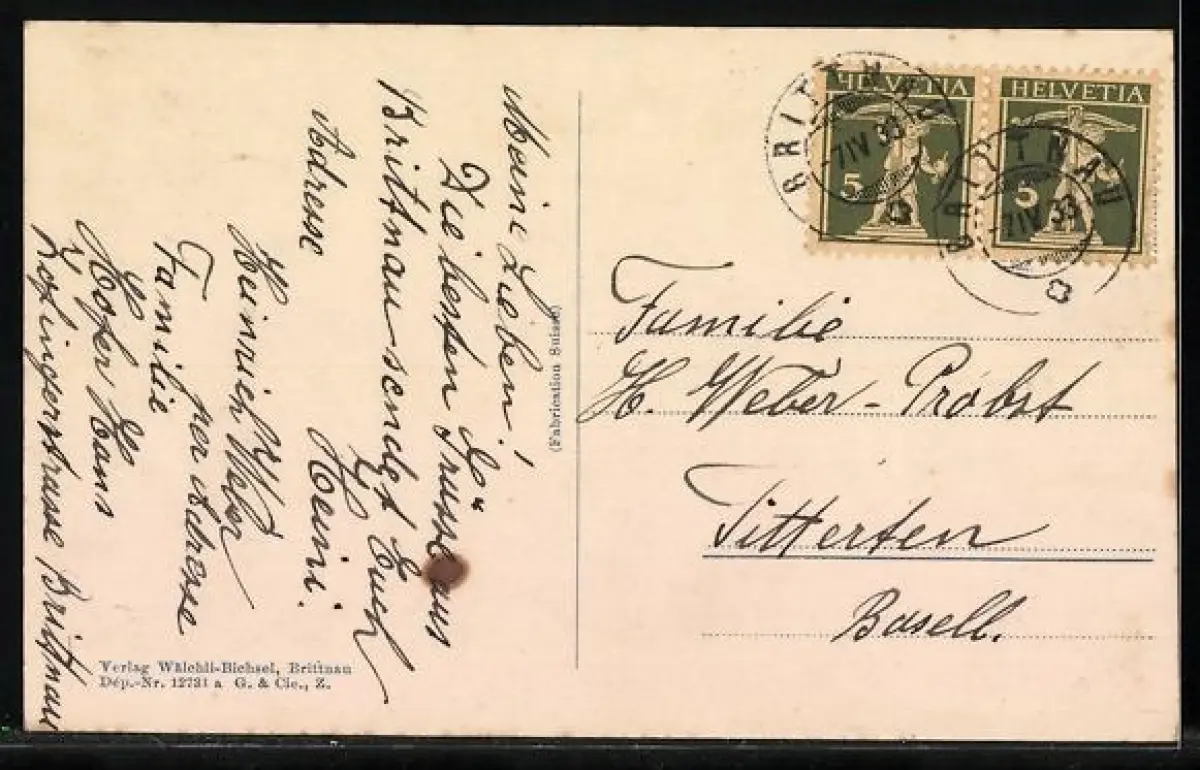 Meine Lieben!
Die besten Grüsse aus
Brittnau sendet Euch
Heini.
Adresse
Heinrich Weber
per Adresse
Familie
Hofer Hans
Zofingerstrasse Brittnau
Verlag Wälchli-Bichsel, Brittnau
Dép.-Nr. 12731 a G. & Cie., Z.
(Fabrication Suisse)
HELVETIA
5
HELVETIA
5
BRITTNAU
-7 IV 33
BRITTNAU
-7 IV 33
Familie
H. Weber-Probst
Titterten
Basell.